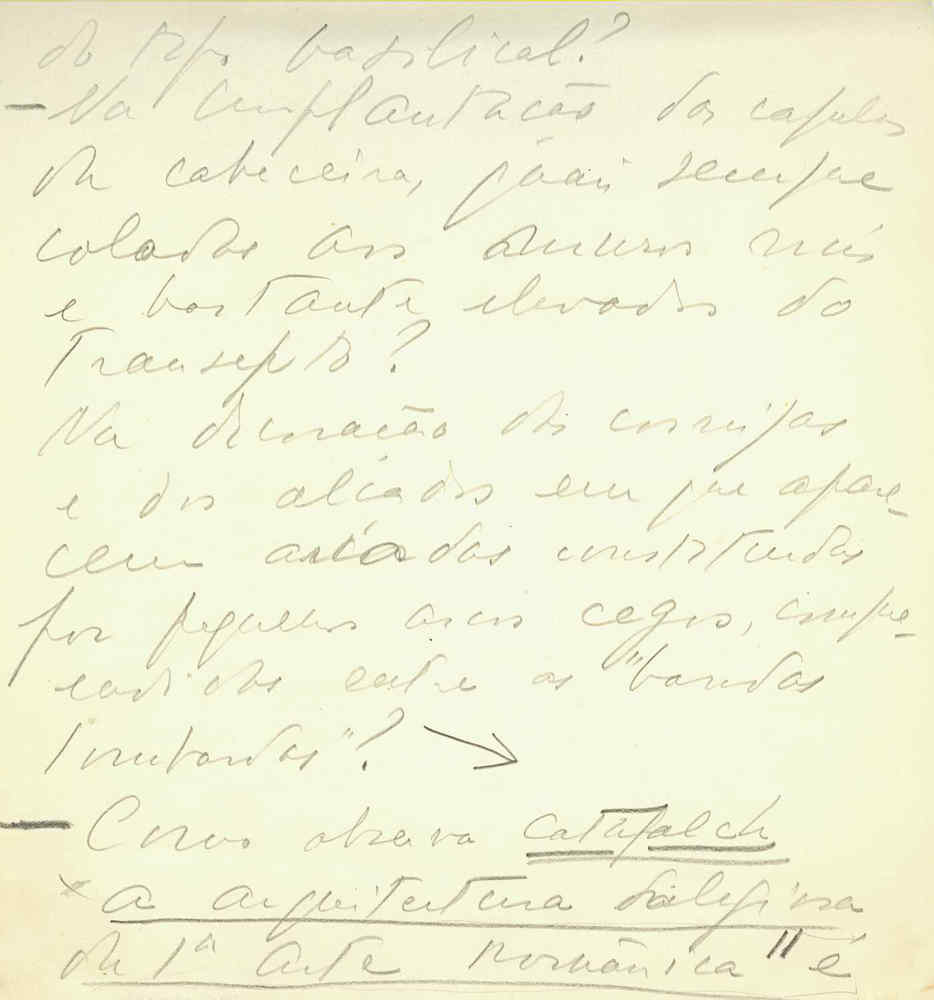 do tipo basilical?
– Na implantação das capelas
da cabeceira, quasi sempre
coladas aos muros nús
e bastante elevados do
Transepto?
Na decoração das cornijas
e dos alçados em que apare-
cem arcadas constituidas
por pequenos arcos cegos, compre-
endidos entre as "bandas
lombardas"?
– Como observa Catafalch
"a arquitectura religiosa
da 1ª arte Românica" é